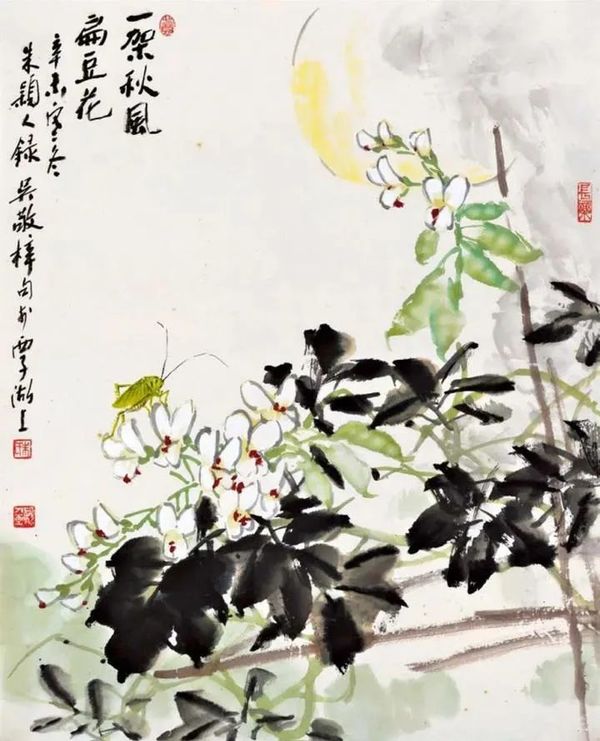 一架秋風
扁豆花
辛未寒冬
朱穎人録 吳敬梓句於西子湖上